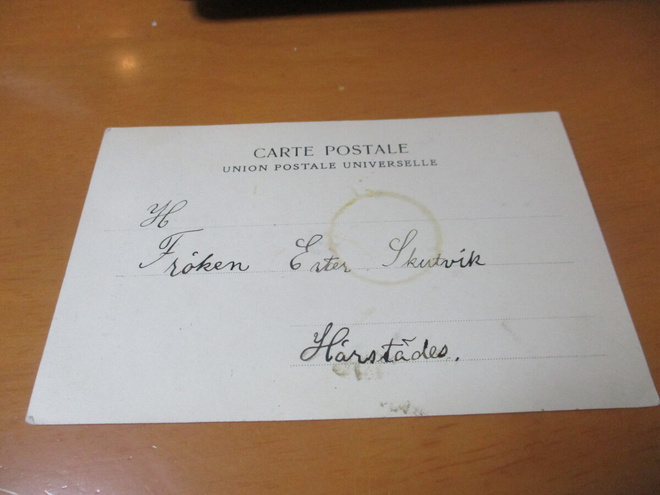 CARTE POSTALE
UNION POSTALE UNIVERSELLE
H
Fröken Ester Skutvik
Härstädes.